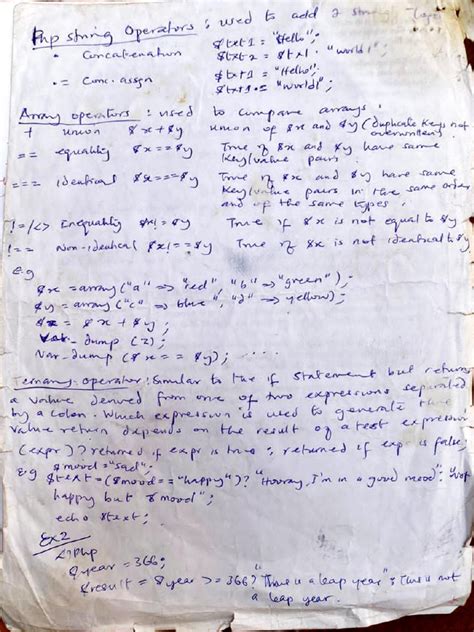 Php string Operators : used to add 2 string
. Concatenation $txt1 = "Hello";
$txt2 = $txt1 . "world!";
.= Conc. assgn $txt1 = "Hello";
$txt1 .= "world!";
Array operators : used to compare arrays.
+ union $x+$y union of $x and $y (duplicate keys not
overwritten)
== equality $x==$y True if $x and $y have same
key/value pairs
=== identical $x===$y True if $x and $y have same
key/value pairs in the same order
and of the same types.
!=/<> Inequality $x!=$y True if $x is not equal to $y
!== Non-identical $x!==$y True if $x is not identical to $y
e.g
$x = array("a" => "red", "b" => "green");
$y = array("c" => blue", "d" => yellow);
$z = $x + $y ;
Var_dump (z);
Var_dump ($x == $y);
Ternary operator: Similar to the if statement but return
a value derived from one of two expressions separated
by a colon. Which expression is used to generate the
value return depends on the result of a test expression
(expr)? returned if expr is true : returned if expr is false;
eg $mood = "sad";
$text = ($mood == "happy")? "Hooray, I'm in a good mood":
happy but $mood";
echo $text;
Ex2
<?php
$year = 366;
$result = $year >= 366? "This is a leap year" : This is not
a leap year.